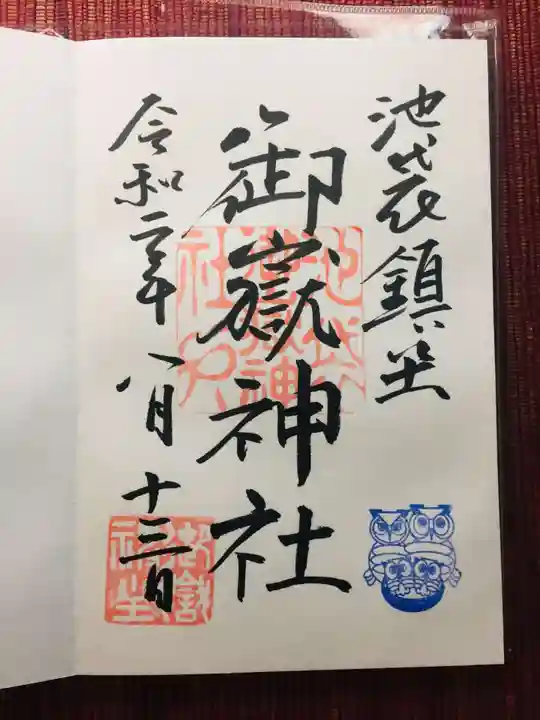 池袋鎮坐
御嶽神社
令和二年八月十三日